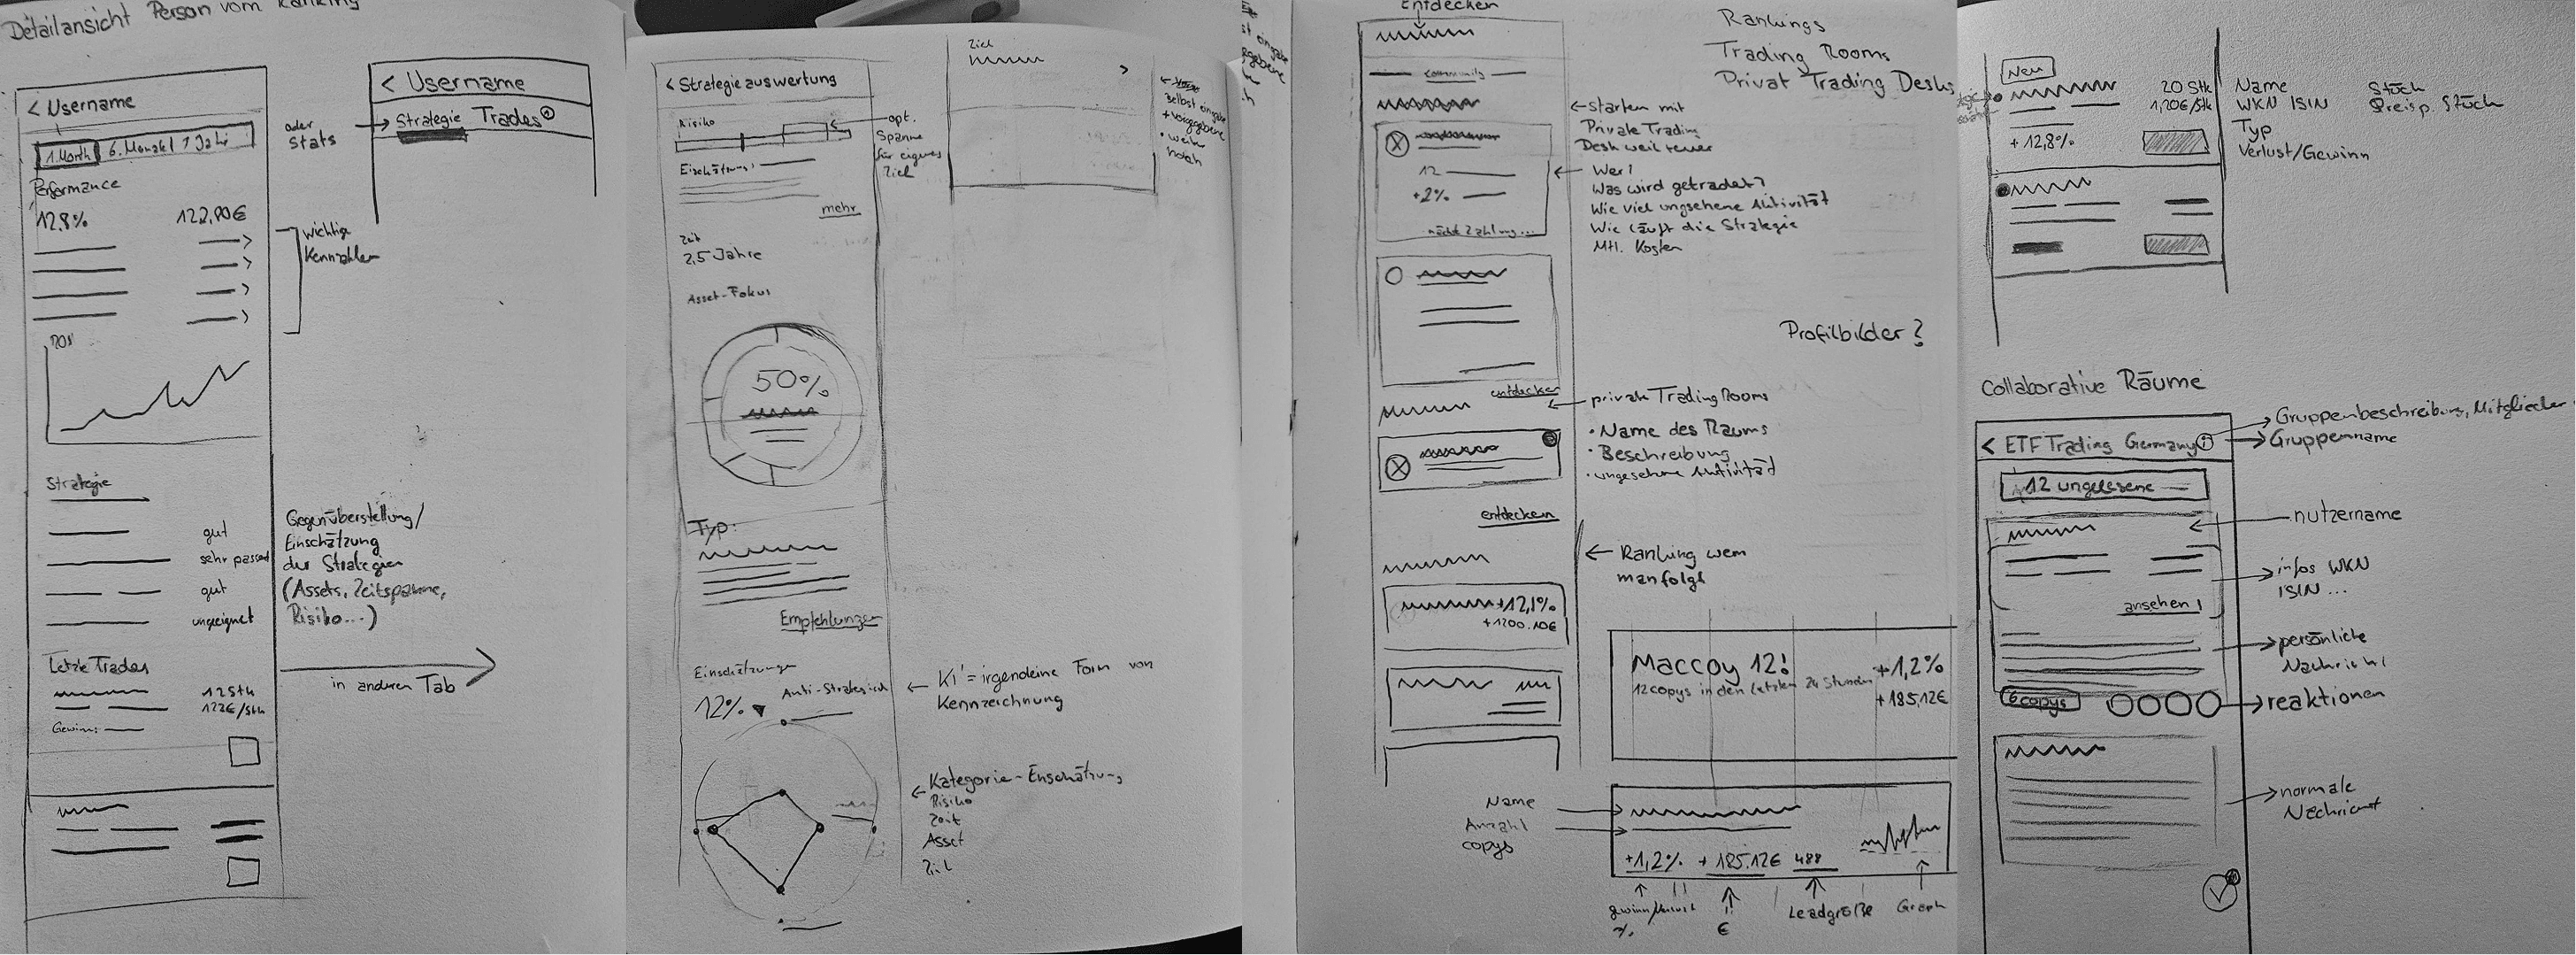 Detailansicht Person vom Ranking
< Username
1.Month 6. Monate 1 Jahr
Performance
12,8% 122,90€
ROI
Strategie
gut
sehr passend
gut
ungeeignet
Letzte Trades
12Stk
122€/Stk
Gewinn:
oder
Stats
< Username
Strategie Trades
wichtige
Kennzahlen
Gegenüberstellung/
Einschätzung
der Strategien
(Assets, Zeitspanne,
Risiko...)
in anderen Tab
< Strategieauswertung
Risiko
Einschätzung:
mehr
opt.
Spanne
für eigenes
Ziel
Zeit
2,5 Jahre
Asset-Fokus
50%
Typ:
Empfehlungen
Einschätzung
12% Anti-Strategisch
KI = irgendeine Form von
Kennzeichnung
Kategorie-Einschätzung
Risiko
Zeit
Asset
Ziel
Ziel
selbst eingabe
+ vorgegebene
Entdecken
community
12
+2%
nächste Zahlung...
entdecken
entdecken
+12,1%
+1200.10€
Rankings
Trading Rooms
Privat Trading Desks
starten mit
Private Trading
Desk weil teuer
Wer?
Was wird getradet?
Wie viel ungsehene Aktivität
Wie läuft die Strategie
Mtl. Kosten
Profilbilder?
private TradingRooms
• Name des Raums
• Beschreibung
• ungesehene Aktivität
Ranking wem
man folgt
Maccoy 12!
12copys in den letzten 24 Stunden
+1,2%
+185,12€
Name
Anzahl
copys
+1,2% + 185.12€ 488
gewinn/Verlust
%
€
Leadgröße
Graph
Neu
20 Stk
1,20€/Stk
+12,8%
Name
WKN ISIN
Typ
Verlust/Gewinn
Stück
Preis p. Stück
Collaborative Räume
< ETF Trading Germany i
12 ungelesene
ansehen
6 copys
Gruppenbeschreibung, Mitglieder
Gruppenname
nutzername
infos WKN
ISIN ...
persönliche
Nachricht
reaktionen
normale
Nachricht